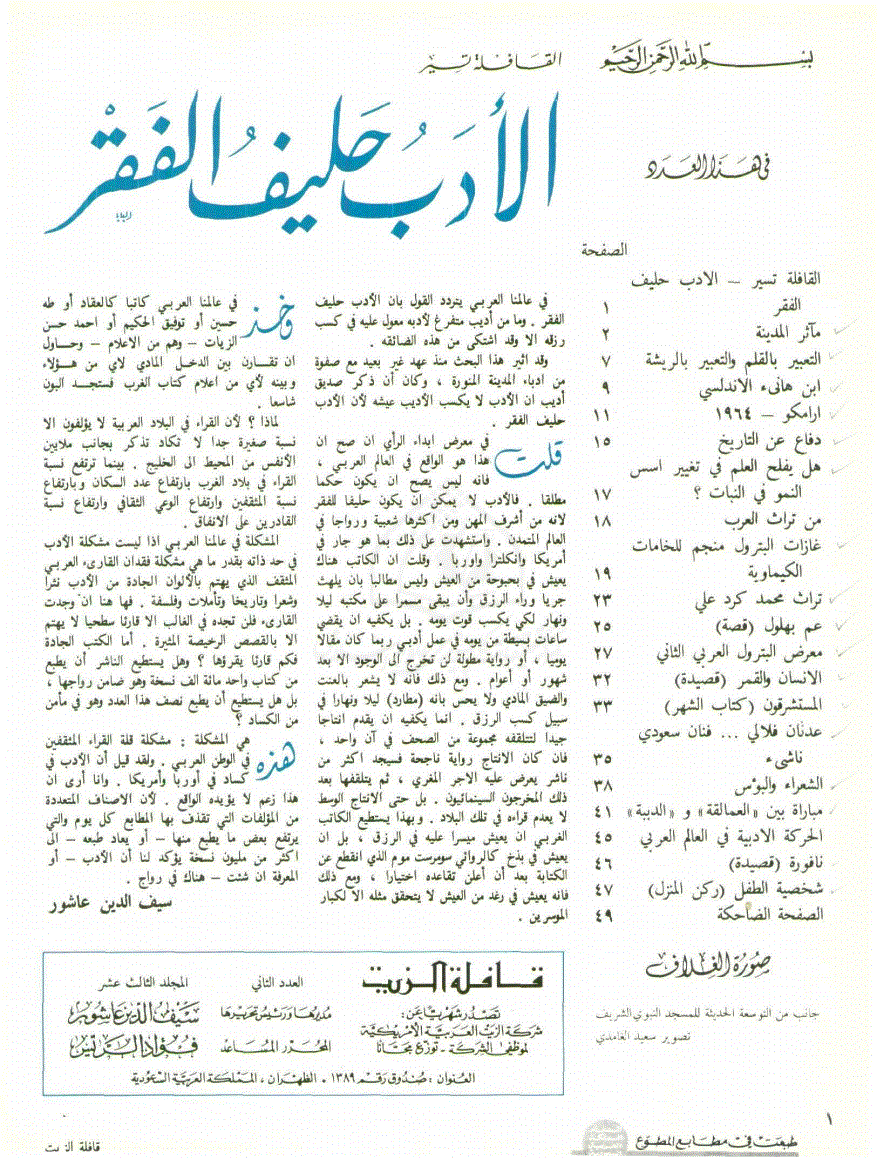 بسم الله الرحمن الرحيم
في هذا العدد
الصفحة
القافلة تسير – الادب حليف
الفقر ١
مآثر المدينة ٢
التعبير بالقلم والتعبير بالريشة ٧
ابن هانىء الاندلسي ٩
ارامكو – ١٩٦٤ ١١
دفاع عن التاريخ ١٥
هل يفلح العلم في تغيير اسس
النمو في النبات ؟ ١٧
من تراث العرب ١٨
غازات البترول منجم للخامات
الكيماوية ١٩
تراث محمد كرد علي ٢٣
عم بهلول (قصة) ٢٥
معرض البترول العربي الثاني ٢٧
الانسان والقمر (قصيدة) ٣٢
المستشرقون (كتاب الشهر) ٣٣
عدنان فلالي ... فنان سعودي
ناشىء ٣٥
الشعراء والبؤس ٣٨
مباراة بين «العمالقة» و «الدببة» ٤١
الحركة الادبية في العالم العربي ٤٥
نافورة (قصيدة) ٤٦
شخصية الطفل (ركن المنزل) ٤٧
الصفحة الضاحكة ٤٩
صورة الغلاف
جانب من التوسعة الحديثة للمسجد النبوي الشريف
تصوير سعيد الغامدي
القافلة تسير
الأدب حليف الفقر
في عالمنا العربي يتردد القول بان الأدب حليف
الفقر . وما من أديب متفرغ لأدبه معول عليه في كسب
رزقه الا وقد اشتكى من هذه الضائقه .
وقد اثير هذا البحث منذ عهد غير بعيد مع صفوة
من ادباء المدينة المنورة ، وكان أن ذكر صديق
أديب ان الأدب لا يكسب الأديب عيشه لأن الأدب
حليف الفقر .
قلت في معرض ابداء الرأي ان صح ان
هذا هو الواقع في العالم العربي ،
فانه ليس يصح ان يكون حكما
مطلقا . فالأدب لا يمكن ان يكون حليفا للفقر
لانه من أشرف المهن ومن اكثرها شعبية ورواجا في
العالم المتمدن . واستشهدت على ذلك بما هو جار في
أمريكا وانكلترا واوربا . وقلت ان الكاتب هناك
يعيش في بحبوحة من العيش وليس مطالبا بان يلهث
جريا وراء الرزق وأن يبقى مسمرا على مكتبه ليلا
ونهار لكي يكسب قوت يومه . بل يكفيه ان يقضي
ساعات بسيطة من يومه في عمل أدبي ربما كان مقالا
يوميا ، أو رواية مطولة لن تخرج الى الوجود الا بعد
شهور أو أعوام . ومع ذلك فانه لا يشعر بالعنت
والضيق المادي ولا يحس بانه (مطارد) ليلا ونهارا في
سبيل كسب الرزق . انما يكفيه ان يقدم انتاجا
جيدا لتتلقفه مجموعة من الصحف في آن واحد ،
فان كان الانتاج رواية ناجحة فسيجد اكثر من
ناشر يعرض عليه الاجر المغري ، ثم يتلقفها بعد
ذلك المخرجون السينمائيون . بل حتى الانتاج الوسط
لا يعدم قراءه في تلك البلاد . وبهذا يستطيع الكاتب
الغربي ان يعيش ميسرا عليه في الرزق ، بل ان
يعيش في بذخ كالروائي سومرست موم الذي انقطع عن
الكتابة بعد أن أعلن تقاعده اختيارا ، ومع ذلك
فانه يعيش في رغد من العيش لا يتحقق مثله الا لكبار
الموسرين .
وخذ في عالمنا العربي كاتبا كالعقاد أو طه
حسين أو توفيق الحكيم أو احمد حسن
الزيات – وهم من الاعلام – وحاول
ان تقارن بين الدخل المادي لاي من هؤلاء
وبينه لأي من اعلام كتاب الغرب فستجد البون
شاسعا .
لماذا ؟ لأن القراء في البلاد العربية لا يؤلفون الا
نسبة صغيرة جدا لا تكاد تذكر بجانب ملايين
الأنفس من المحيط الى الخليج . بينما ترتفع نسبة
القراء في بلاد الغرب بارتفاع عدد السكان وبارتفاع
نسبة المثقفين وارتفاع الوعي الثقافي وارتفاع نسبة
القادرين على الانفاق .
المشكلة في عالمنا العربي اذا ليست مشكلة الأدب
في حد ذاته بقدر ما هي مشكلة فقدان القارىء العربي
المثقف الذي يهتم بالألوان الجادة من الأدب نثرا
وشعرا وتاريخا وتأملات وفلسفة . فها هنا ان وجدت
القارىء فلن تجده في الغالب الا قارئا سطحيا لا يهتم
الا بالقصص الرخيصة المثيرة . أما الكتب الجادة
فكم قارئا يقرؤها ؟ وهل يستطيع الناشر أن يطبع
من كتاب واحد مائة الف نسخة وهو ضامن رواجها ،
بل هل يستطيع أن يطبع نصف هذا العدد وهو في مأمن
من الكساد ؟
هذه هي المشكلة : مشكلة قلة القراء المثقفين
في الوطن العربي . ولقد قيل أن الأدب في
كساد في أوربا وأمريكا . وانا أرى ان
هذا زعم لا يؤيده الواقع . لأن الاصناف المتعددة
من المؤلفات التي تقذف بها المطابع كل يوم والتي
يرتفع بعض ما يطبع منها – أو يعاد طبعه – الى
اكثر من مليون نسخة يؤكد لنا أن الأدب – أو
المعرفة ان شئت – هناك في رواج .
سيف الدين عاشور
قافلة الزيت
تصدر شهريا عن:
شركة الزيت العربية الأمريكية
لموظفي الشركة - توزع مجانا
العدد الثاني
المجلد الثالث عشر
مديرها ورئيس تحريرها سيف الدين عاشور
المحرر المساعد فؤاد الريس
العنوان : صندوق رقم ١٣٨٩ ، الظهران ، المملكة العربية السعودية
١
طبعت في مطابع المطوع
قافلة الزيت